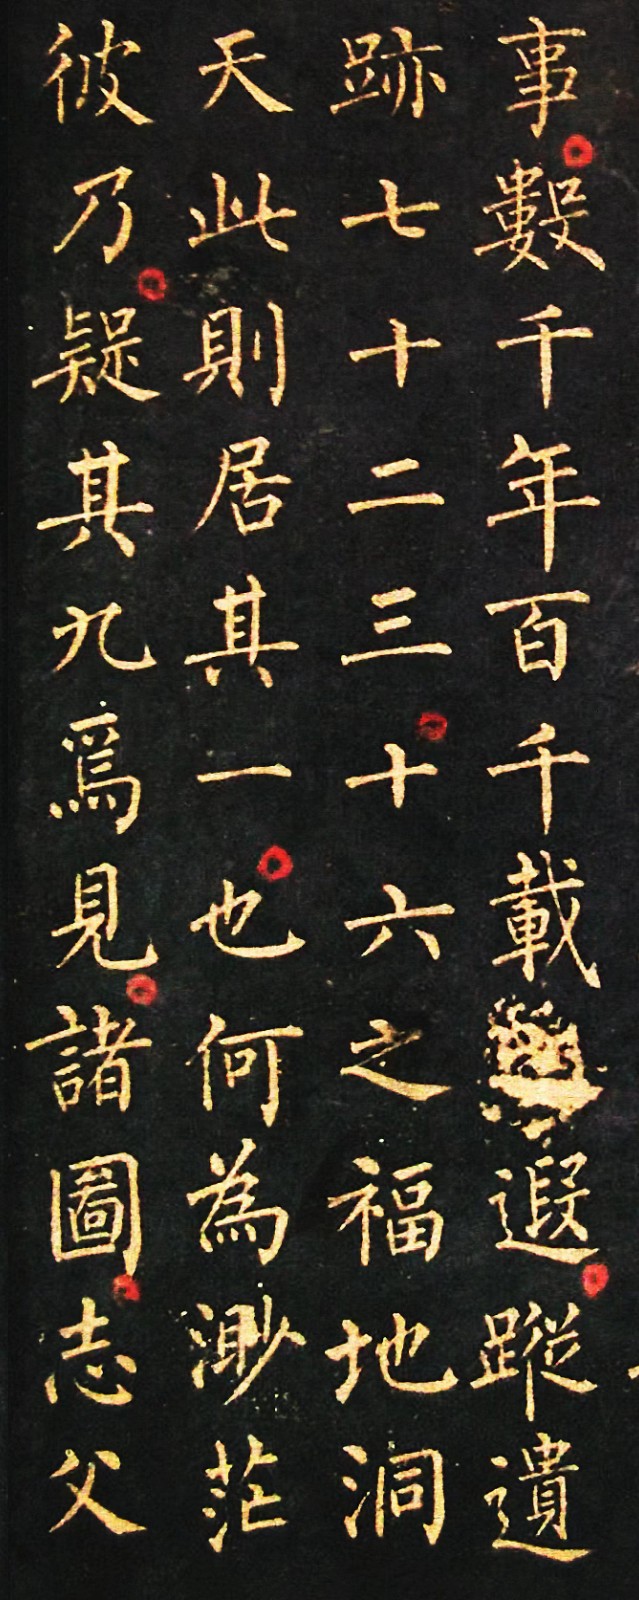 事數千年百千載遐蹤遺
跡七十二三十六之福地洞
天此則居其一也何為渺茫
彼乃疑其九焉見諸圖志父